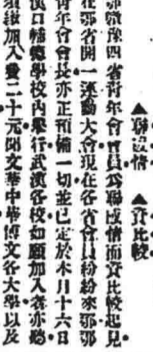 ▲聯感情　▲資比較
鄂贛豫四省青年會會員爲聯感情而資比較起見
在鄂省開一運動大會現在各省會員紛紛來鄂鄂
青年會會長亦正預備一切並已定於本月十六日
漢口輔德學校內舉行武漢各校如願加入者亦聽
須繳加入費二十元聞文華中華博文各大學以及